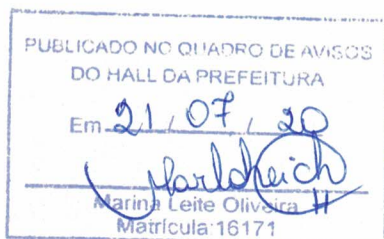 PUBLICADO NO QUADRO DE AVISOS
DO HALL DA PREFEITURA
Em 21 / 07 / 20
Marina Leite Oliveira
Matrícula:16171